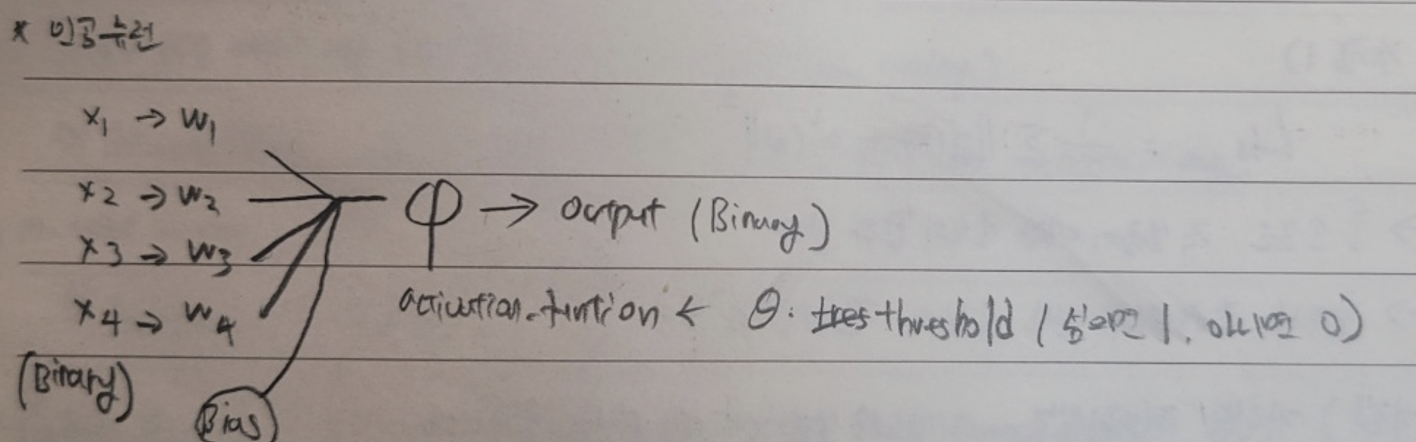 * 인공뉴런
x₁ → w₁
x₂ → w₂
φ → output (Binary)
x₃ → w₃
x₄ → w₄
activation function ← θ: threshold ( 넘으면 1, 아니면 0)
(Binary)
Bias